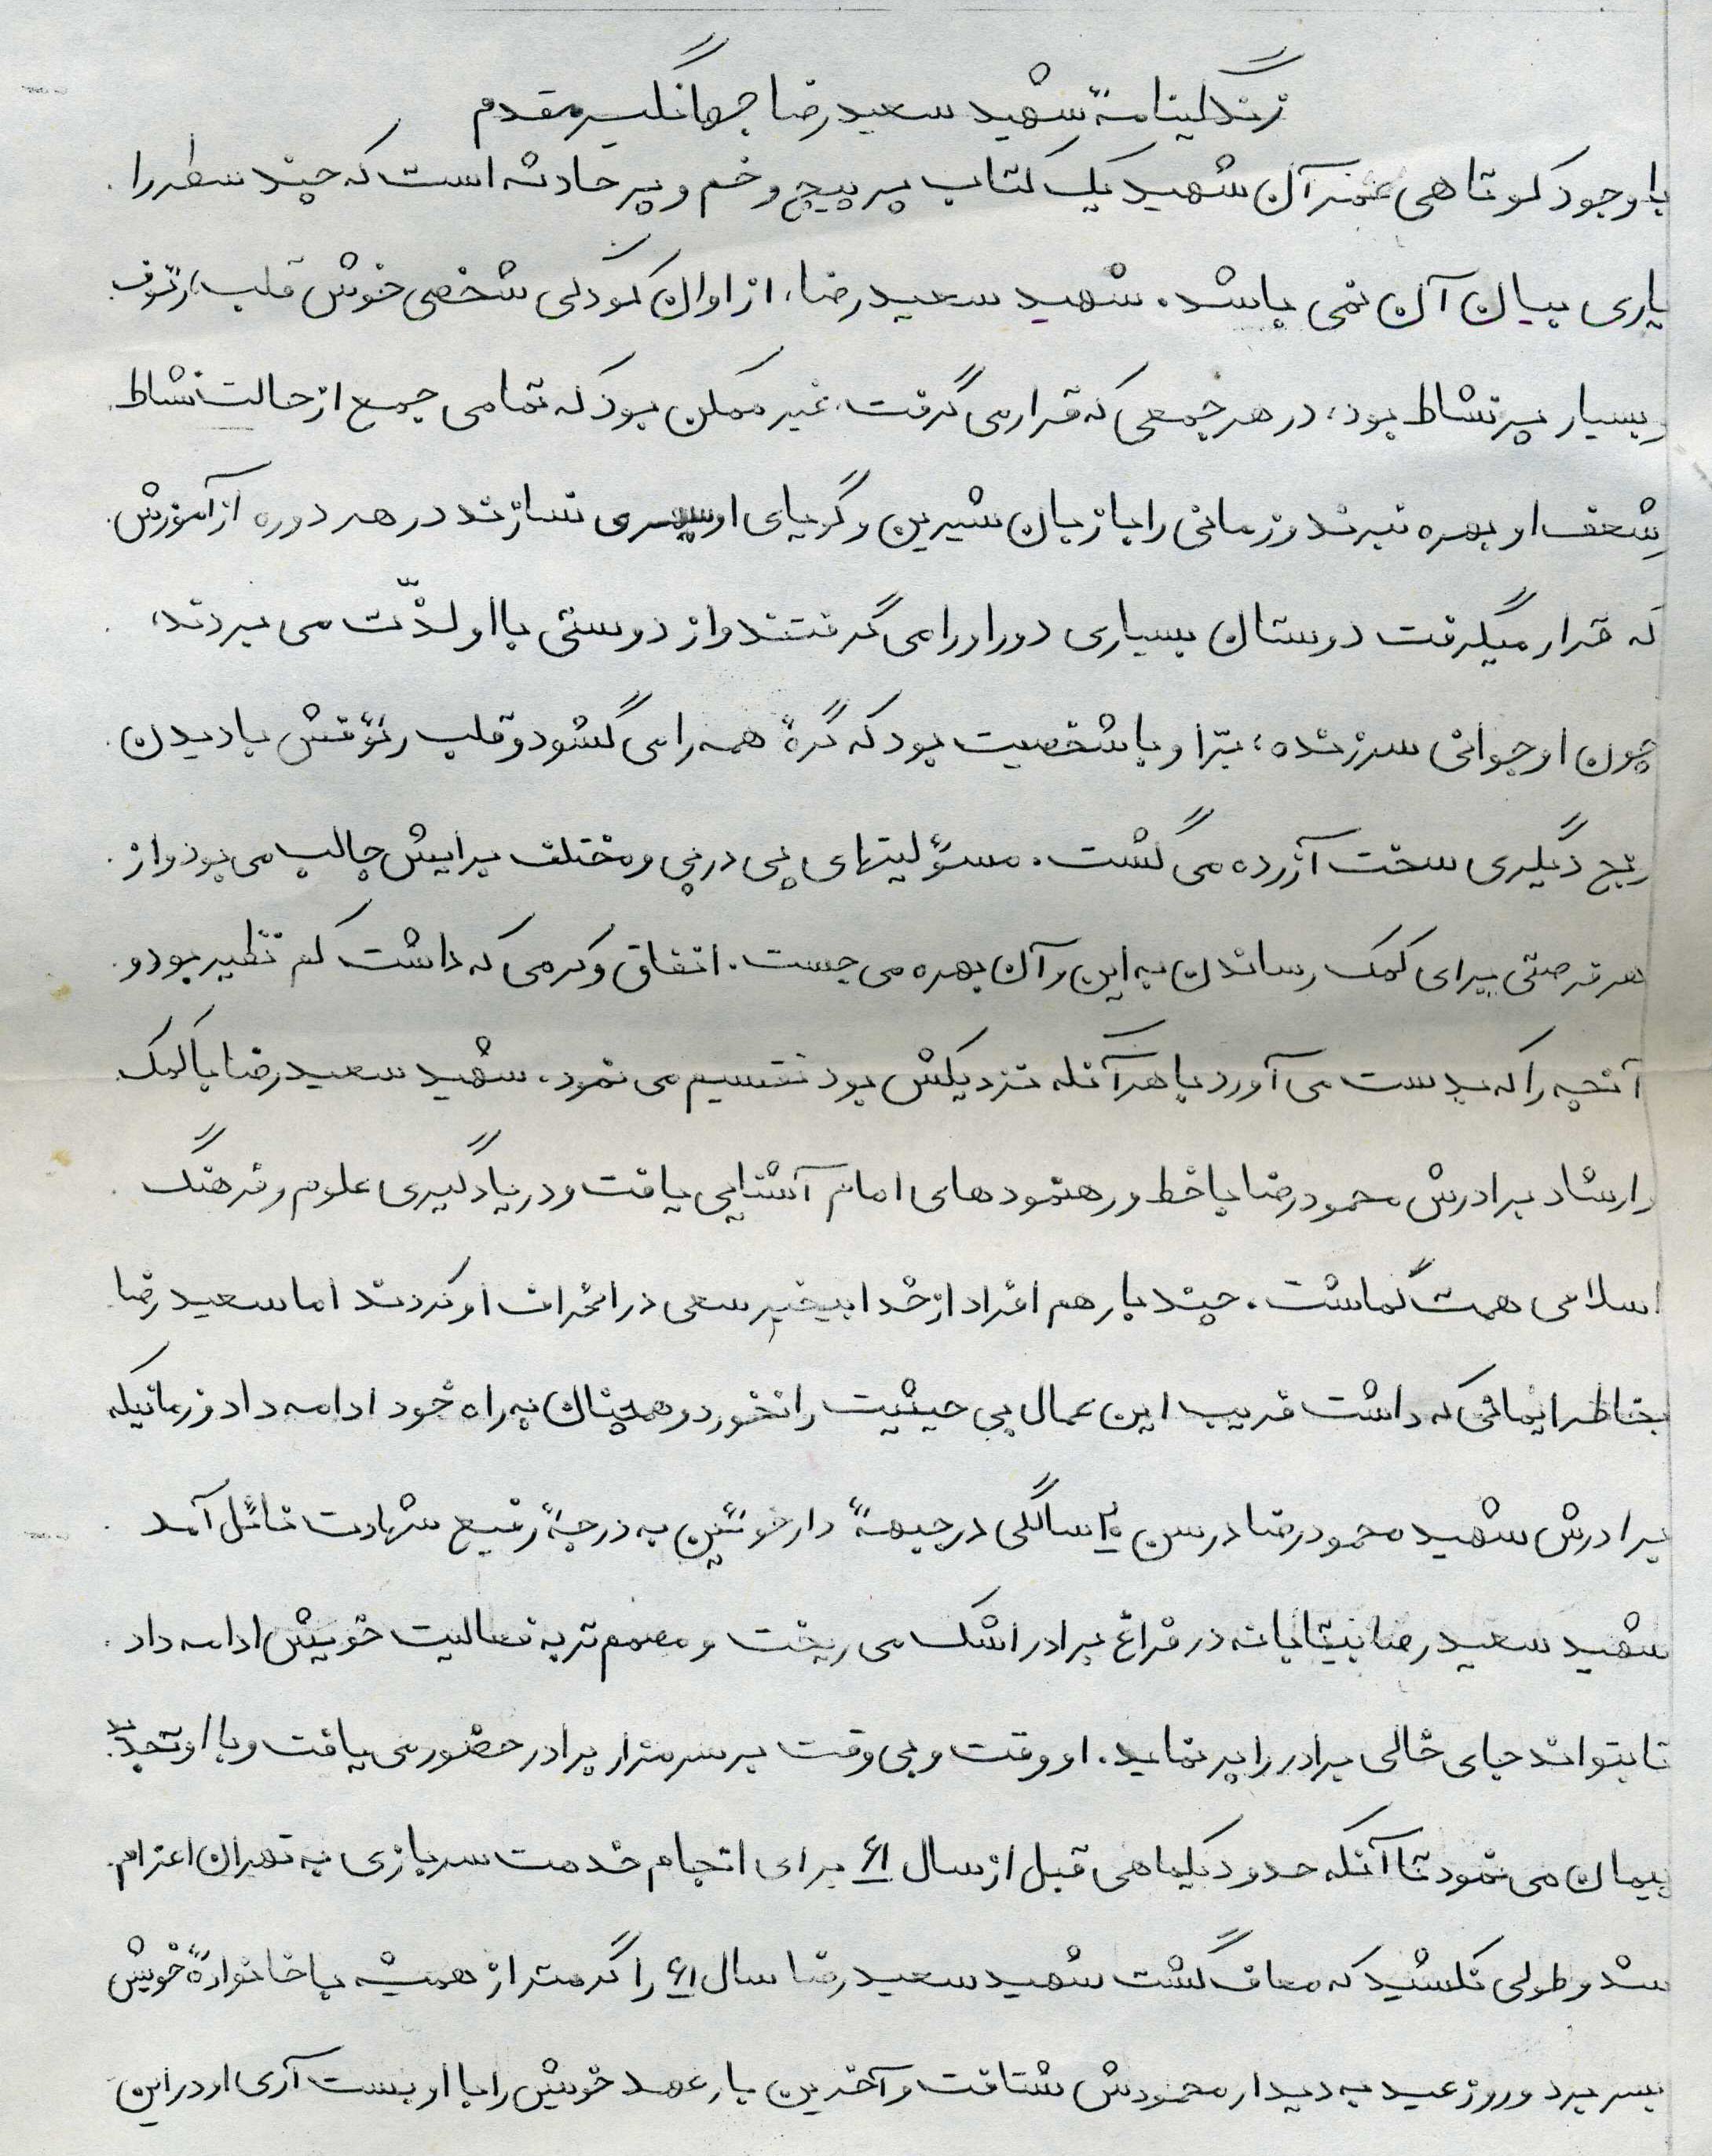 زندگینامهٔ شهید سعیدرضا جهانگیر مقدم
با وجود کوتاهی عمر آن شهید یک کتاب پر پیچ و خم و پر حادثه است که چند سطر را
یاری بیان آن نمی باشد. شهید سعیدرضا، از اوان کودکی شخصی خوش قلب، رئوف
و بسیار پر نشاط بود، در هر جمعی که قرار می گرفت، غیر ممکن بود که تمامی جمع از حالت نشاط
و شعف او بهره نبرند و زمانی را با زبان شیرین و گویای او سپری نسازند در هر دوره از آموزش
که قرار میگرفت دوستان بسیاری دور او را می گرفتند و از دوستی با او لذّت می بردند،
چون او جوانی سرزنده، برّا و با شخصیت بود که گرهٔ همه را می گشود و قلب رئوفش با دیدن
رنج دیگری سخت آزرده می گشت. مسؤلیتهای پی در پی و مختلف برایش جالب می بود و از
هر فرصتی برای کمک رساندن به این و آن بهره می جست. انفاق و کرمی که داشت کم نظیر بود و
آنچه را که بدست می آورد با هر آنکه نزدیکش بود تقسیم می نمود. شهید سعیدرضا با کمک
و ارشاد برادرش محمودرضا با خط و رهنمودهای امام آشنایی یافت و در یادگیری علوم و فرهنگ
اسلامی همت گماشت. چند بار هم افراد از خدا بیخبر سعی در انحراف او کردند اما سعیدرضا
بخاطر ایمانی که داشت فریب این عمال بی حیثیت را نخورد و همچنان به راه خود ادامه داد و زمانیکه
برادرش شهید محمودرضا در سن ۲۰ سالگی در جبههٔ دارخوئین به درجهٔ رفیع شهادت نائل آمد
شهید سعیدرضا بیتابانه در فراغ برادر اشک می ریخت و مصمم تر به فعالیت خویش ادامه داد
تا بتواند جای خالی برادر را پر نماید. او وقت و بی وقت بر سر مزار برادر حضور می یافت و با او تجدید
پیمان می نمود تا آنکه حدود یکماهی قبل از سال ۶۱ برای انجام خدمت سربازی به تهران اعزام
شد و طولی نکشید که معاف گشت شهید سعیدرضا سال ۶۱ را گرمتر از همیشه با خانوادهٔ خویش
بسر برد و روز عید به دیدار محمودش شتافت و آخرین بار عهد خویش را با او بست آری او در این